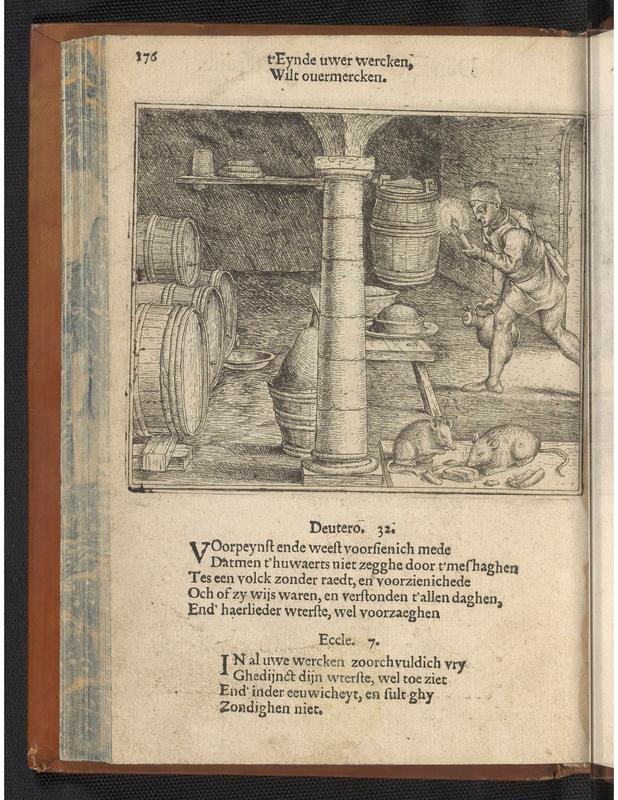 176
t'Eynde uwer wercken,
Wilt ouermercken.
Deutero. 32.
VOorpeynst ende weest voorsienich mede
Datmen t'huwaerts niet zegghe door t'meshaghen
Tes een volck zonder raedt, en voorzienichede
Och of zy wijs waren, en verstonden t'allen daghen,
End' haerlieder wterste, wel voorzaeghen
Eccle. 7.
IN al uwe wercken zoorchvuldich vry
Ghedijnct dijn wterste, wel toe ziet
End' inder eeuwicheyt, en sult ghy
Zondighen niet.